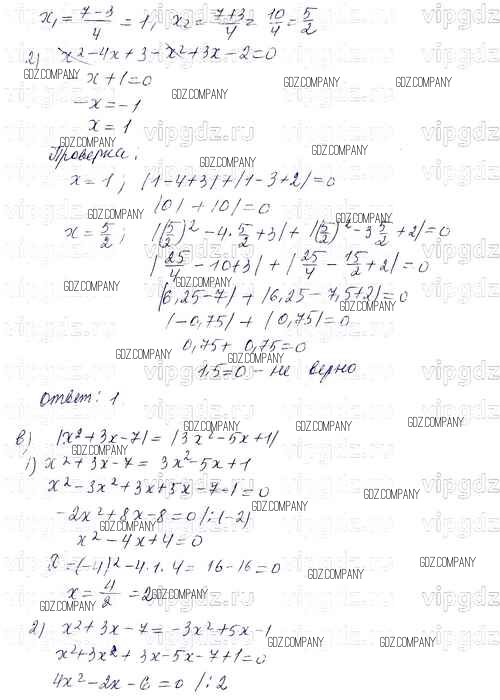 x₁ = (7-3)/4 = 1, x₂ = (7+3)/4 = 10/4 = 5/2
2) x² - 4x + 3 - x² + 3x - 2 = 0
- x + 1 = 0
- x = -1
x = 1
Проверка:
x = 1; |1-4+3| + |1-3+2| = 0
|0| + |0| = 0
x = 5/2; |(5/2)² - 4·5/2 + 3| + |(5/2)² - 3 5/2 + 2| = 0
|25/4 - 10 + 3| + |25/4 - 15/2 + 2| = 0
|6,25 - 7| + |6,25 - 7,5 + 2| = 0
|-0,75| + |0,75| = 0
0,75 + 0,75 = 0
1,5 = 0 - не верно
Ответ: 1
в) |x² + 3x - 7| = |3x² - 5x + 1|
1) x² + 3x - 7 = 3x² - 5x + 1
x² - 3x² + 3x + 5x - 7 - 1 = 0
-2x² + 8x - 8 = 0 /:(-2)
x² - 4x + 4 = 0
x = (-4)² - 4·1·4 = 16 - 16 = 0
x = 4/2 = 2
2) x² + 3x - 7 = -3x² + 5x - 1
x² + 3x² + 3x - 5x - 7 + 1 = 0
4x² - 2x - 6 = 0 /:2
GDZ.COMPANY
vipgdz.ru